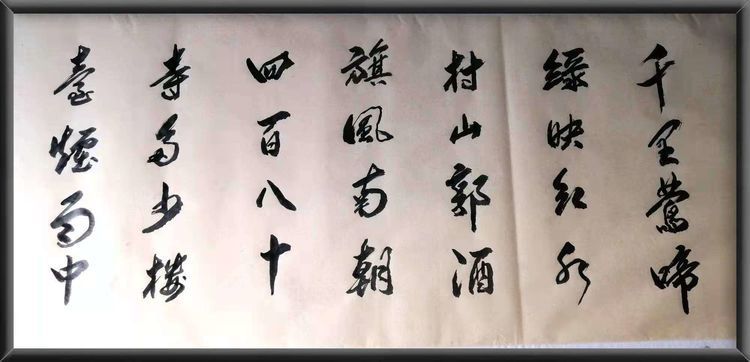 千里莺啼
綠映红水
村山郭酒
旗風南朝
四百八十
寺多少樓
臺煙雨中